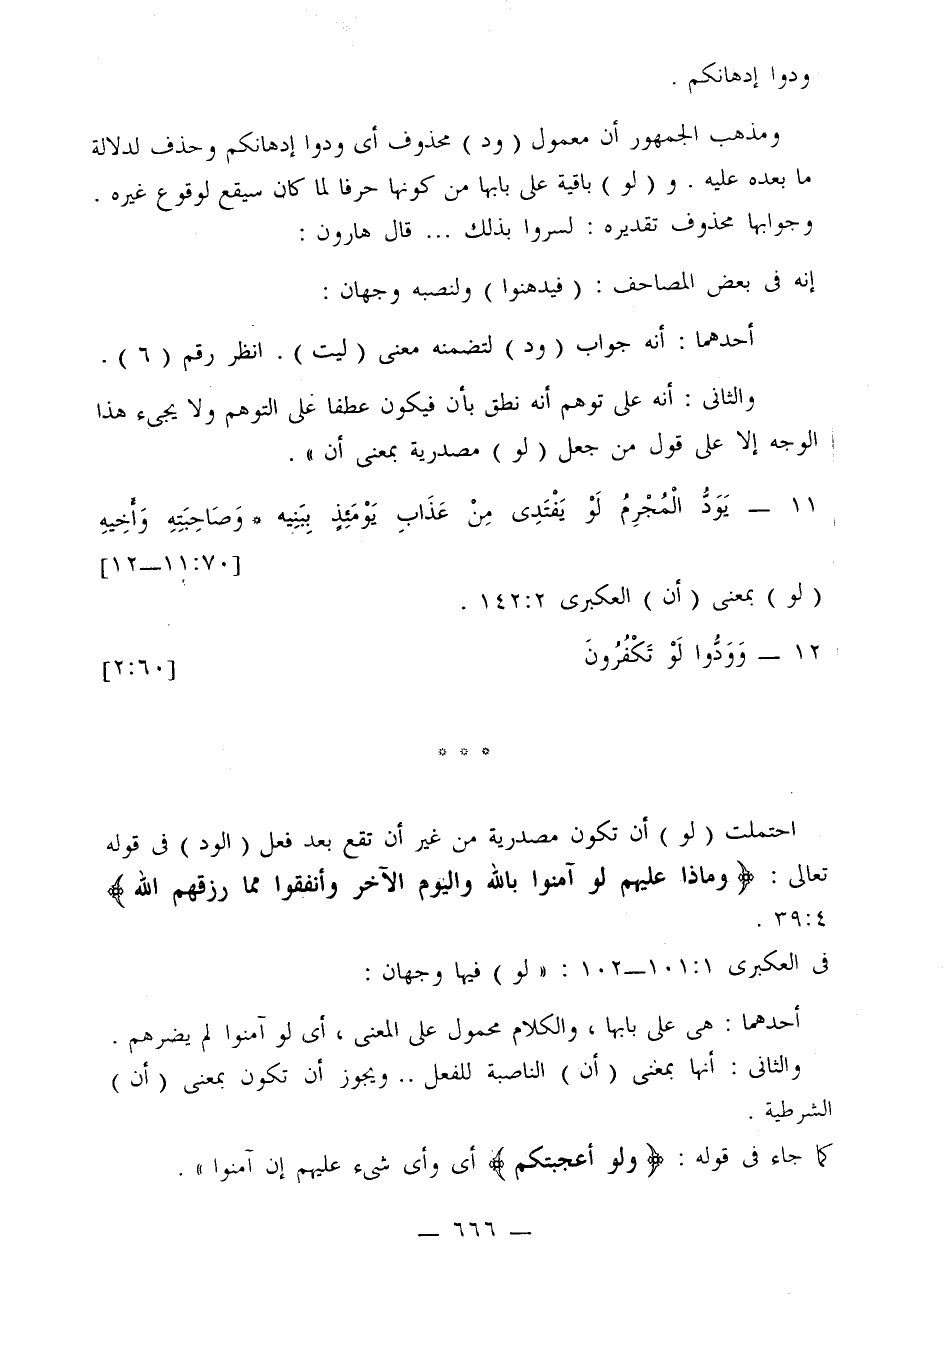 ودوا إدهانكم .
ومذهب الجمهور أن معمول ( ود ) محذوف أى ودوا إدهانكم وحذف لدلالة
ما بعده عليه . و ( لو ) باقية على بابها من كونها حرفا لما كان سيقع لوقوع غيره .
وجوابها محذوف تقديره : لسروا بذلك ... قال هارون :
إنه فى بعض المصاحف : ( فيدهنوا ) ولنصبه وجهان :
أحدهما : أنه جواب ( ود ) لتضمنه معنى ( ليت ) . انظر رقم ( ٦ ) .
والثانى : أنه على توهم أنه نطق بأن فيكون عطفا على التوهم ولا يجىء هذا
الوجه إلا على قول من جعل ( لو ) مصدرية بمعنى أن » .
١١ — يَوَدُّ الْمُجْرِمُ لَوْ يَفْتَدِى مِنْ عَذَابِ يَوْمَئِذٍ بِبَنِيه * وَصَاحِبَتِهِ وَأَخِيهِ
[١١:٧٠—١٢]
( لو ) بمعنى ( أن ) العكبرى ١٤٢:٢ .
١٢ — وَوَدُّوا لَوْ تَكْفُرُونَ [٢:٦٠]
* * *
احتملت ( لو ) أن تكون مصدرية من غير أن تقع بعد فعل ( الود ) فى قوله
تعالى : ﴿ وماذا عليهم لو آمنوا بالله واليوم الآخر وأنفقوا مما رزقهم الله ﴾
٣٩:٤ .
فى العكبرى ١٠١:١—١٠٢ : « لو ) فيها وجهان :
أحدهما : هى على بابها ، والكلام محمول على المعنى ، أى لو آمنوا لم يضرهم .
والثانى : أنها بمعنى ( أن ) الناصبة للفعل .. ويجوز أن تكون بمعنى ( أن )
الشرطية .
كما جاء فى قوله : ﴿ ولو أعجبتكم ﴾ أى وأى شىء عليهم إن آمنوا » .
— ٦٦٦ —